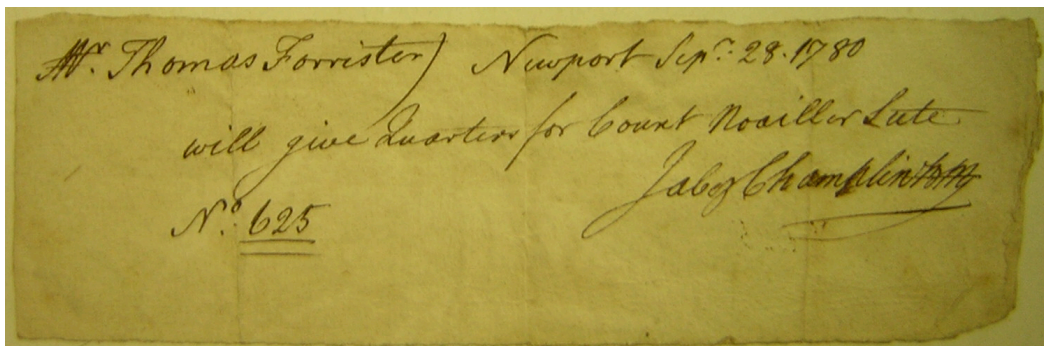 Mr. Thomas Forrister) Newport Sepr. 28. 1780
will give Quarters for Count Noailler Sute
Jabez Champlin
No. 625